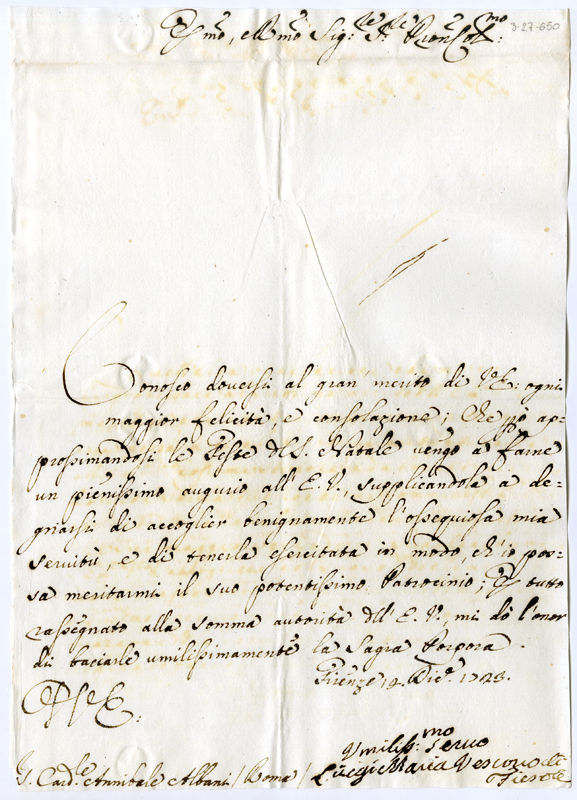 Em.mo, e Rmo Sig.re Sig.re Pron Col.mo
3-27-650
Conosco doversi al gran' merito di V.E: ogni
maggior felicità, e consolazione; Che però ap=
prossimandosi le Feste del S. Natale vengo a farne
un pienissimo augurio all' E.V., supplicandola a de=
gnarsi di accoglier benignamente l'ossequiosa mia
servitù, e di tenerla esercitata in modo, ch'io pos=
sa meritarmi il suo potentissimo Patrocinio; E tutto
rassegnato alla somma autorità dell' E.V., mi dò l'onor
di baciarle umilissimamente la Sagra Porpora.
Firenze 12. Dic.e 1723.
D V E:
Umiliss.mo Servo
S. Card.le Annibale Albani / Roma /
Luigi Maria Vescovo di
Fiesole